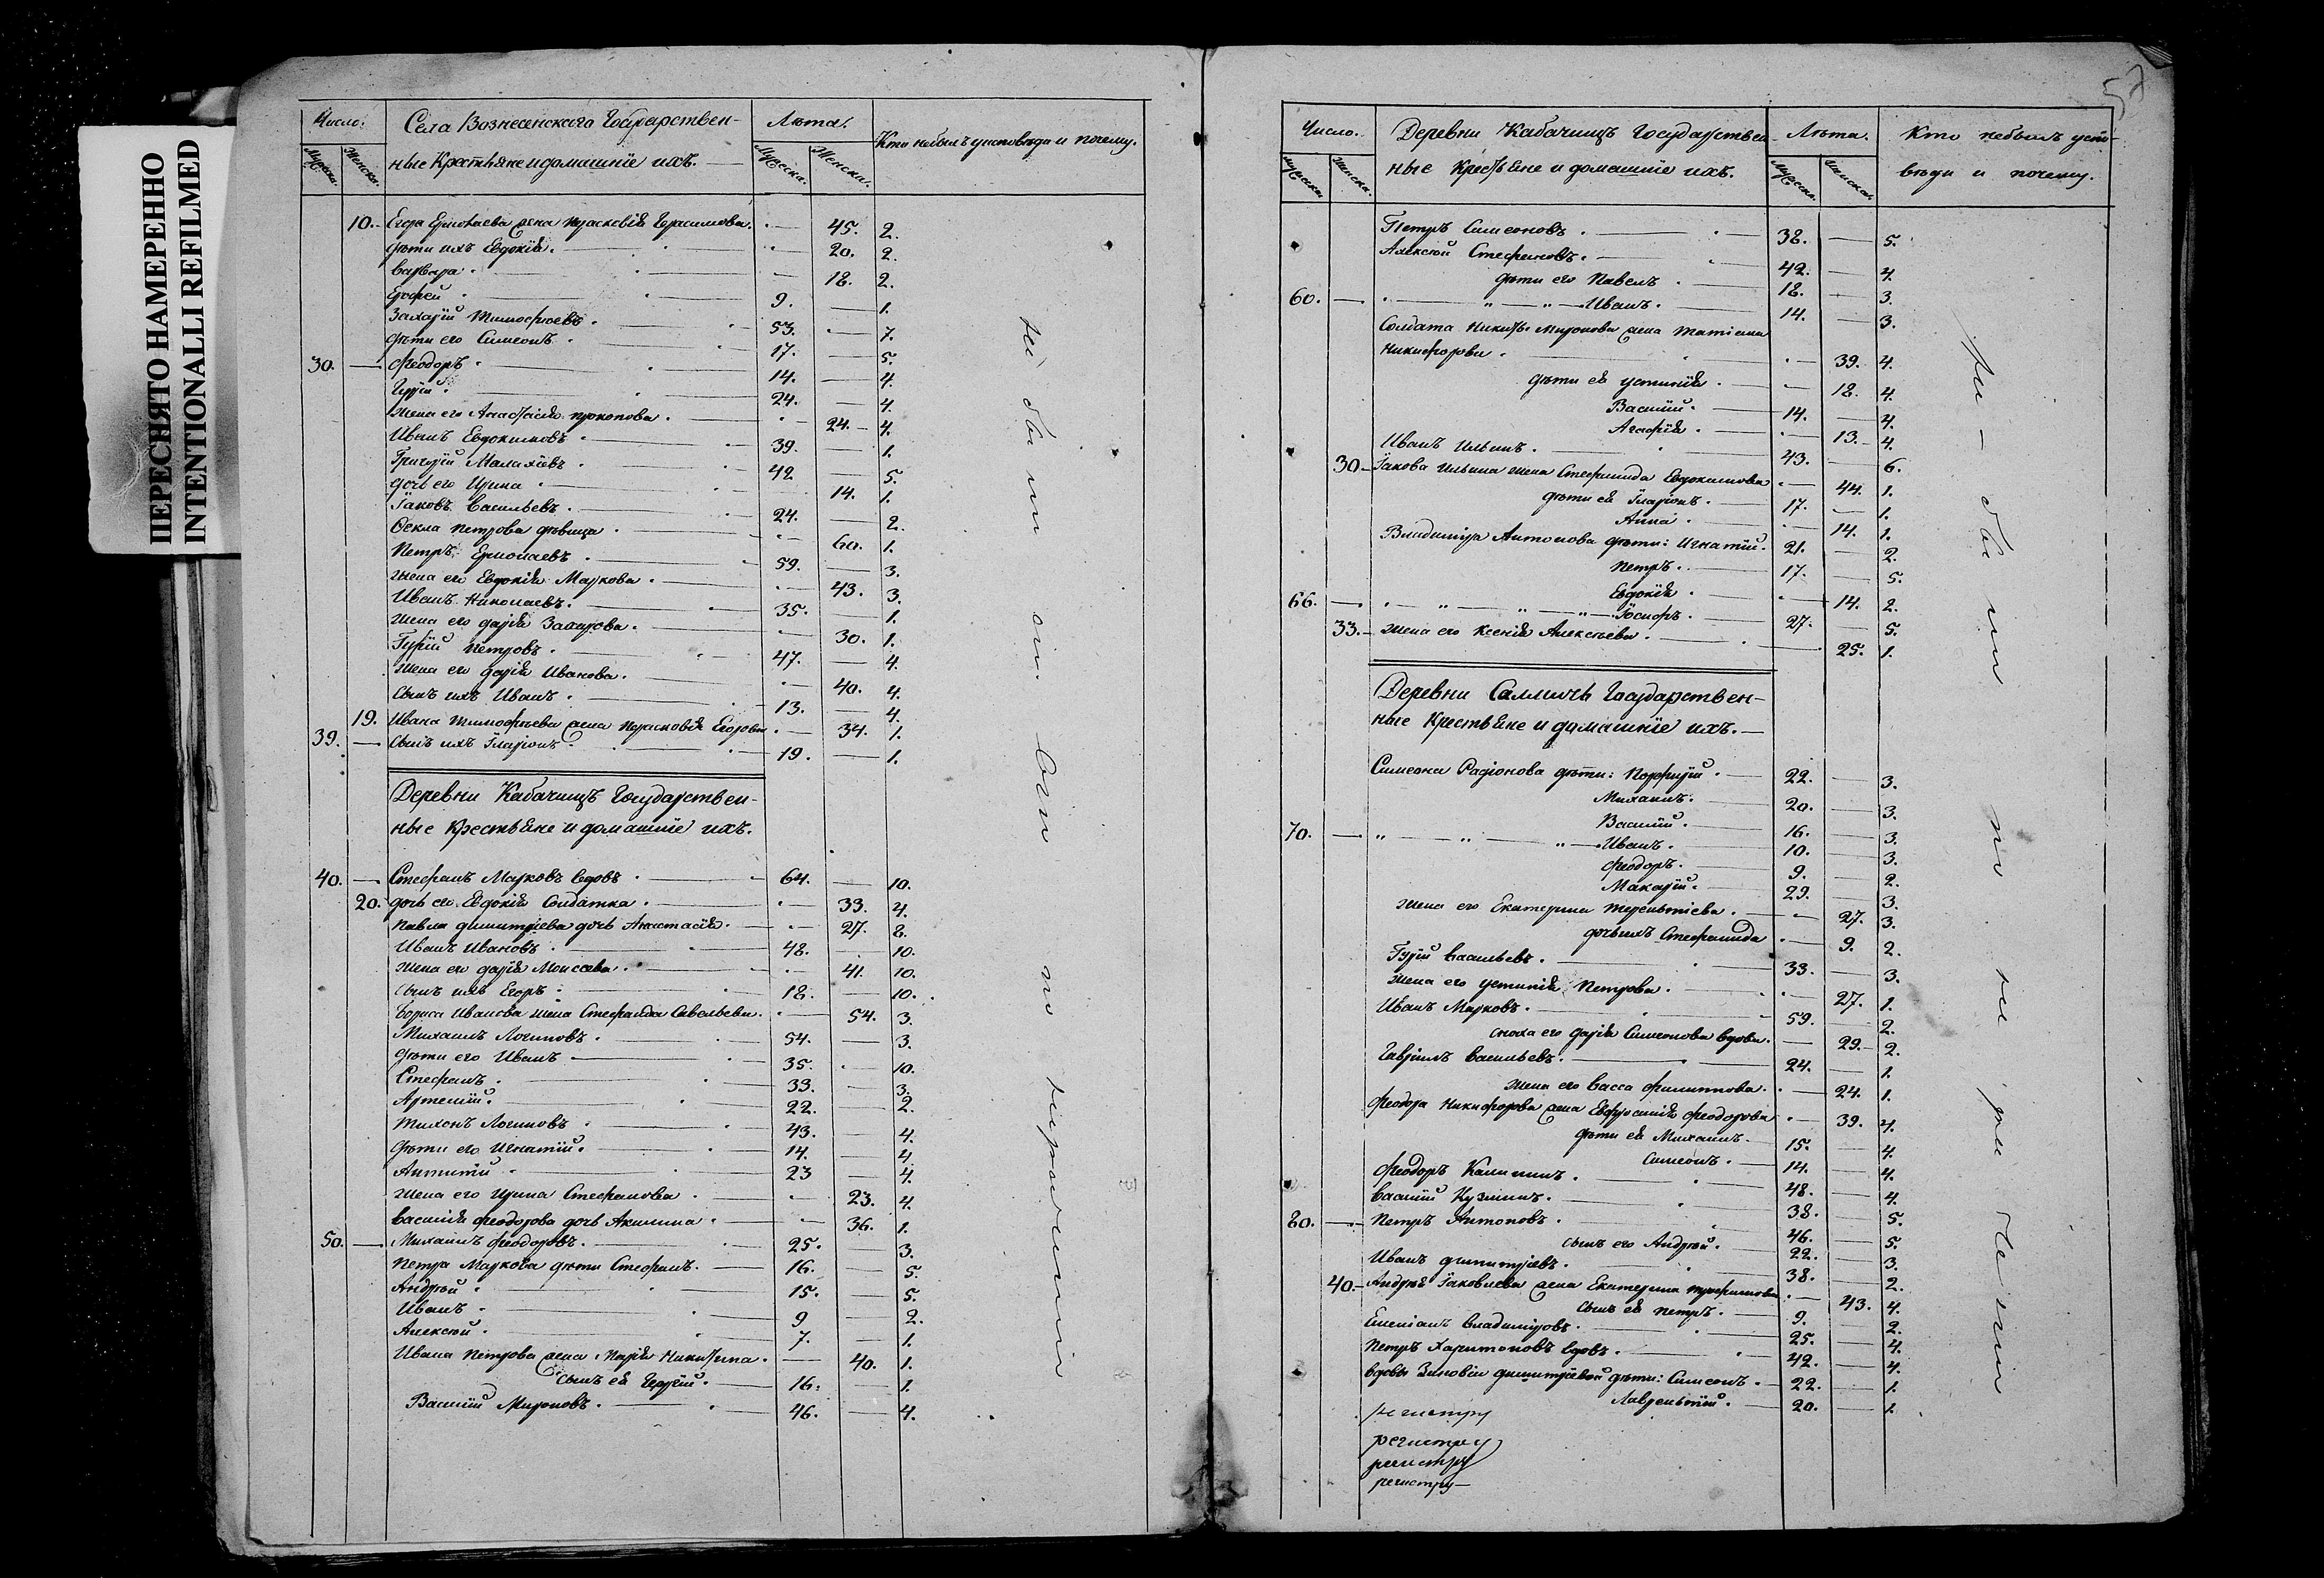 ПЕРЕСНЯТО НАМЕРЕННО
INTENTIONALLI REFILMED
Число.
Села Вознесенскаго Государствен-
ные Крестьяне и домашніе ихъ.
Лѣта.
Кто небылъ у исповѣди и почему.
Мужеска.
Женска.
Мужеска.
Женска.
10. Егора Ермолаева жена Прасковія Герасимова. 45. 2.
Дѣти ихъ Евдокія. 20. 2.
Варвара. 18. 2.
Ерофей. 9. 1.
Захарій Тимофѣевъ. 53. 7.
Дѣти его Симеонъ. 17. 5.
30. Феодоръ. 14. 4.
Гурій. 24. 4.
Жена его Анастасія Прокопова. 24. 4.
Иванъ Евдокимовъ. 39. 1.
Григорій Малахіевъ. 42 5.
Дочь его Ирина. 14. 1.
Іаковъ Васильевъ. 24. 2.
Ѳекла Петрова дѣвица. 60. 1.
Петръ Ермолаевъ. 59. 3.
Жена его Евдокія Маркова. 43. 3.
Иванъ Николаевъ. 35. 1.
Жена его Дарія Захарова. 30. 1.
Гурій Петровъ. 47. 4.
Жена его Дарія Иванова. 40. 4.
Сынъ ихъ Иванъ. 13. 4.
19. Ивана Тимофѣева жена Прасковія Егорова 34. 1.
39. Сынъ ихъ Иларіонъ. 19. 1.
Деревни Кабачищъ Государствен-
ные Крестьяне и домашніе ихъ.
40. Стефанъ Марковъ вдовъ. 64. 10.
20. Дочь его Евдокія Солдатка. 33. 4.
Павла Димитріева дочь Анастасія. 27. 8.
Иванъ Ивановъ. 48. 10.
Жена его Дарія Моисеева. 41. 10.
Сынъ ихъ Егоръ. 18. 10.
Бориса Иванова жена Стефанида Савельева. 54. 3.
Михаилъ Логиновъ. 54. 3.
Дѣти его Иванъ 35. 10.
Стефанъ. 33. 3.
Артемій. 22. 2.
Тихонъ Логиновъ. 43. 4.
Дѣти его Игнатій. 14. 4.
Антипій. 23 4.
Жена его Ирина Стефанова. 23. 4.
Василія Феодорова дочь Акилина. 36. 1.
50. Михаилъ Феодоровъ. 25. 3.
Петра Маркова дѣти Стефанъ. 16. 5.
Андрей. 15. 5.
Иванъ. 9 2.
Алексій. 7. 1.
Ивана Петрова жена Марія Никитина. 40. 1.
Сынъ ея Георгій. 16. 1.
Василій Мироновъ. 46. 4.
не были
57
Число.
Деревни Кабачищъ Государствен-
ные Крестьяне и домашніе ихъ.
Лѣта.
Кто небылъ у испо-
вѣди и почему.
Мужеска
Женска.
Мужеска.
Женска.
Петръ Симеоновъ. 38. 5.
Алексій Стефановъ. 42. 4.
Дѣти его Павелъ. 18. 3.
60. Иванъ. 14. 3.
Солдата Никиты Миронова жена Татіана
Никифорова. 39. 4.
Дѣти ея Устинія. 18. 4.
Василій. 14. 4.
Агафія. 13. 4.
Иванъ Ильинъ. 43. 6.
30. Іакова Ильина жена Стефанида Евдокимова 44. 1.
Дѣти ея Иларіонъ. 17. 1.
Анна. 14. 1.
Владиміра Антонова дѣти: Игнатій. 21. 2.
Петръ. 17. 5.
Евдокія. 14. 2.
66. Іосифъ. 27. 5.
33. Жена его Ксенія Алексѣева. 25. 1.
Деревни Саллигъ Государствен-
ные Крестьяне и домашніе ихъ.
Симеона Радіонова дѣти: Порфирій. 22. 3.
Михаилъ. 20. 3.
70. Василій. 16. 3.
Иванъ. 10. 3.
Феодоръ. 9. 2.
Макарій. 29. 3.
Жена его Екатерина Терентіева. 27. 3.
Дочь ихъ Стефанида 9. 2.
Гурій Васильевъ. 33. 3.
Жена его Устинія Петрова. 27. 1.
Иванъ Марковъ. 59. 2.
Сноха его Дарія Симеонова вдова. 29. 2.
Гавріилъ Васильевъ. 24. 1.
Жена его Васса Филиппова. 24. 1.
Феодора Никифорова жена Евфросинія Феодорова 39. 4.
Дѣти ея Михаилъ. 15. 4.
Симеонъ. 14. 4.
Феодоръ Калининъ. 48. 4.
Василій Кузминъ. 38. 5.
80. Петръ Антоновъ. 46. 5.
Сынъ его Андрей. 22. 3.
Иванъ Димитріевъ. 38. 2.
40. Андрея Іаковлева жена Екатерина Трофимова 43. 4.
Сынъ ея Петръ. 9. 2.
Емеліанъ Владиміровъ. 25. 4.
Петръ Харитоновъ вдовъ. 42. 4.
Вдовы Зиновіи Димитріевой дѣти: Симеонъ. 22. 1.
Лаврентій. 20. 1.
регистру
регистру
регистру
регистру
не были